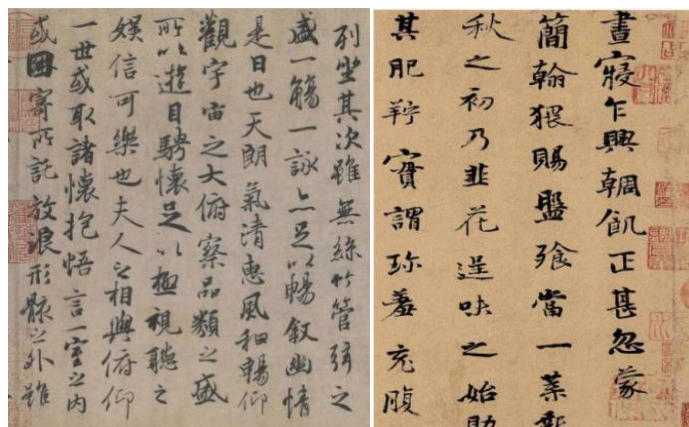 列坐其次雖無絲竹管弦之
盛一觴一詠亦足以暢敘幽情
是日也天朗氣清惠風和暢仰
觀宇宙之大俯察品類之盛
所以遊目騁懷足以極視聽之
娛信可樂也夫人之相與俯仰
一世或取諸懷抱悟言一室之內
或因寄所託放浪形骸之外雖
晝寢乍興輖飢正甚忽蒙
簡翰猥賜盤飧當一葉報
秋之初乃韭花逞味之始助
其肥羜實謂珍羞充腹